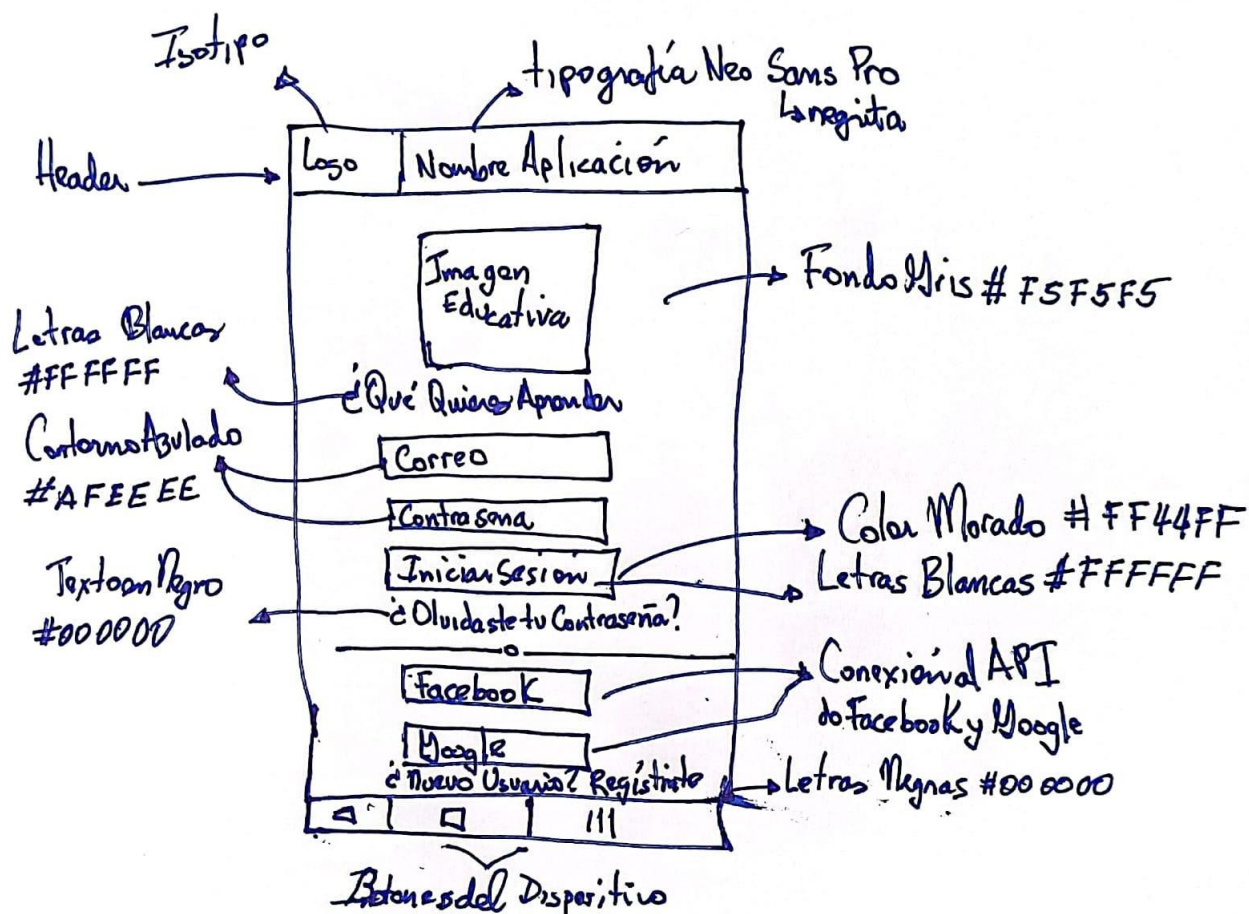 Isotipo
tipografía Neo Sans Pro
negrita
Header
Logo
Nombre Aplicación
Imagen
Educativa
Fondo Gris # F5F5F5
Letras Blancas
#FFFFFF
¿Qué Quieres Aprender
Contorno Azulado
#AFEEEE
Correo
Contraseña
Iniciar Sesión
Color Morado # FF44FF
Letras Blancas #FFFFFF
Texto en Negro
#000000
¿Olvidaste tu Contraseña?
o
Facebook
Google
Conexión al API
de Facebook y Google
¿Nuevo Usuario? Regístrate
Letras Negras #000000
Botones del Dispositivo